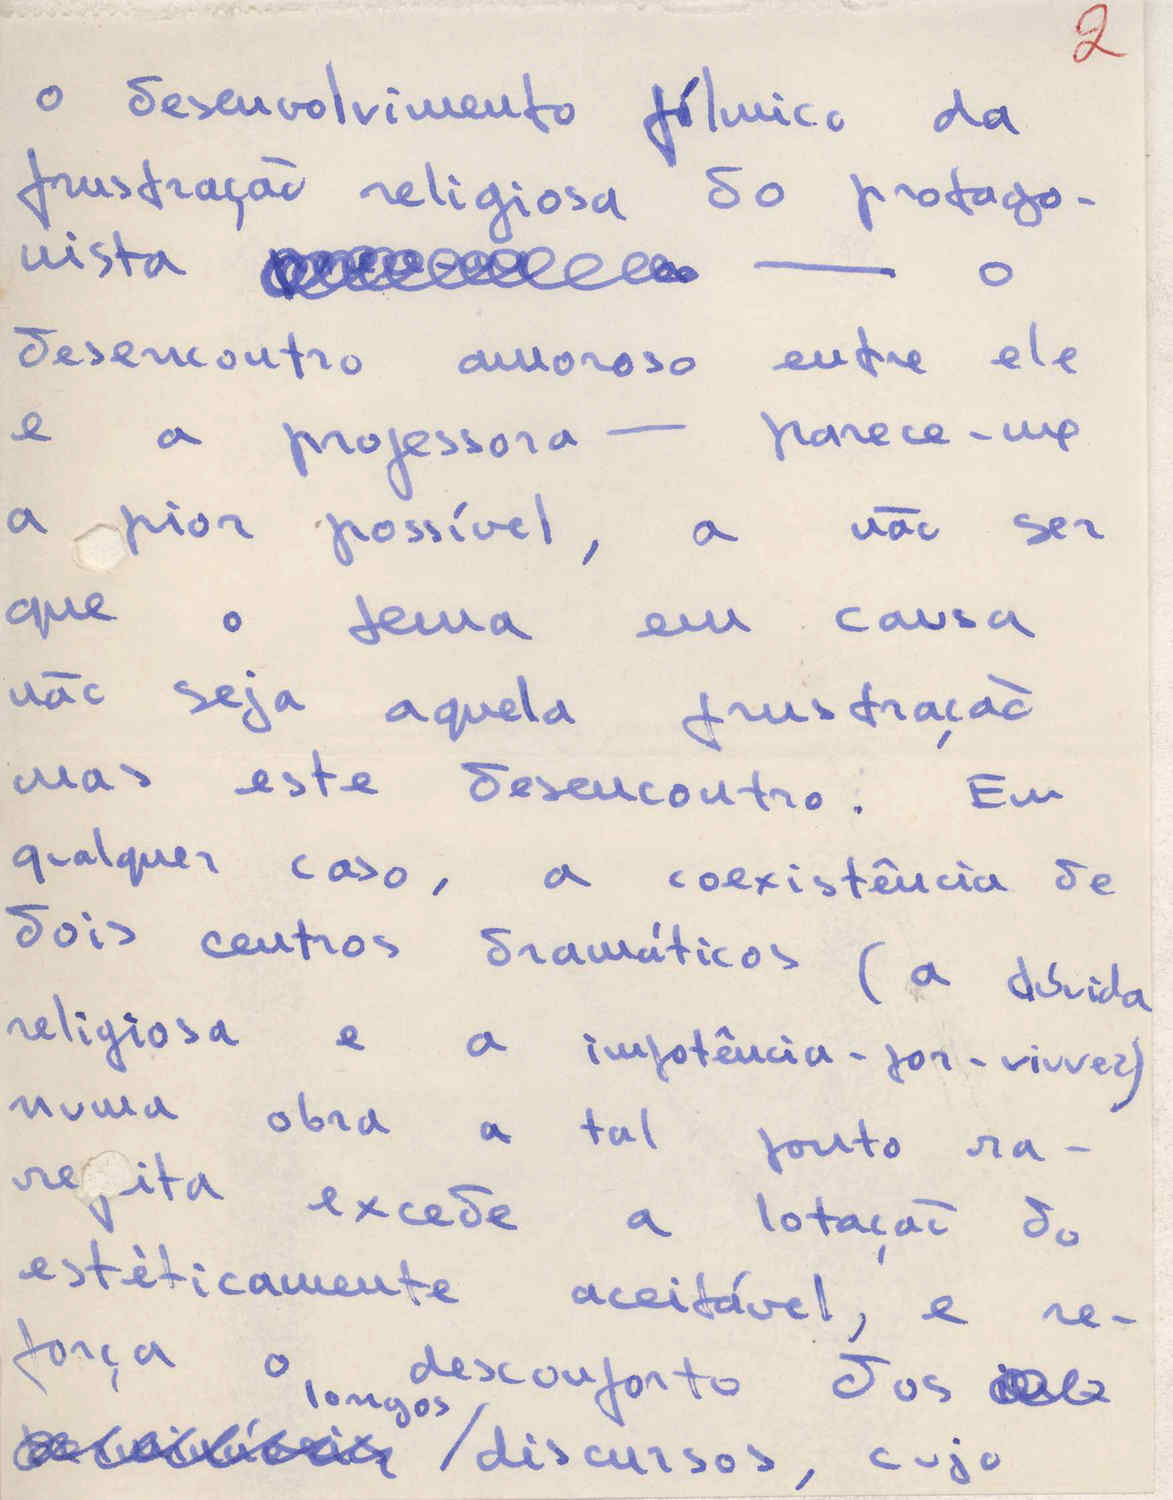 2
o desenvolvimento fílmico da
frustração religiosa do protago-
nista — o
desencontro amoroso entre ele
e a professora — parece-me
a pior possível, a não ser
que o tema em causa
não seja aquela frustração
mas este desencontro. Em
qualquer caso, a coexistência de
dois centros dramáticos (a dúvida
religiosa e a impotência-por-viver)
numa obra a tal ponto ra-
refeita excede a lotação do
estèticamente aceitável, e re-
força o desconforto dos
longos
/discursos, cujo